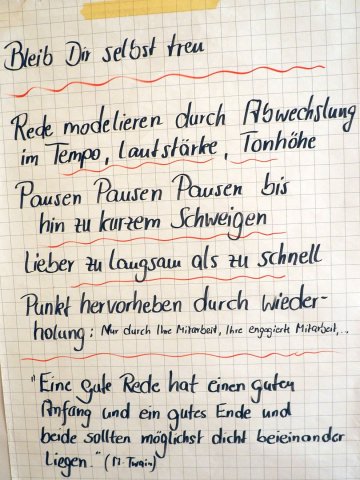 Bleib Dir selbst treu
Rede modelieren durch Abwechslung
im Tempo, Lautstärke, Tonhöhe
Pausen Pausen Pausen bis
hin zu kurzem Schweigen
Lieber zu langsam als zu schnell
Punkt hervorheben durch Wieder-
holung: Nur durch Ihre Mitarbeit, Ihre engagierte Mitarbeit,...
"Eine gute Rede hat einen guten
Anfang und ein gutes Ende und
beide sollten möglichst dicht beieinander
Liegen." (M. Twain)